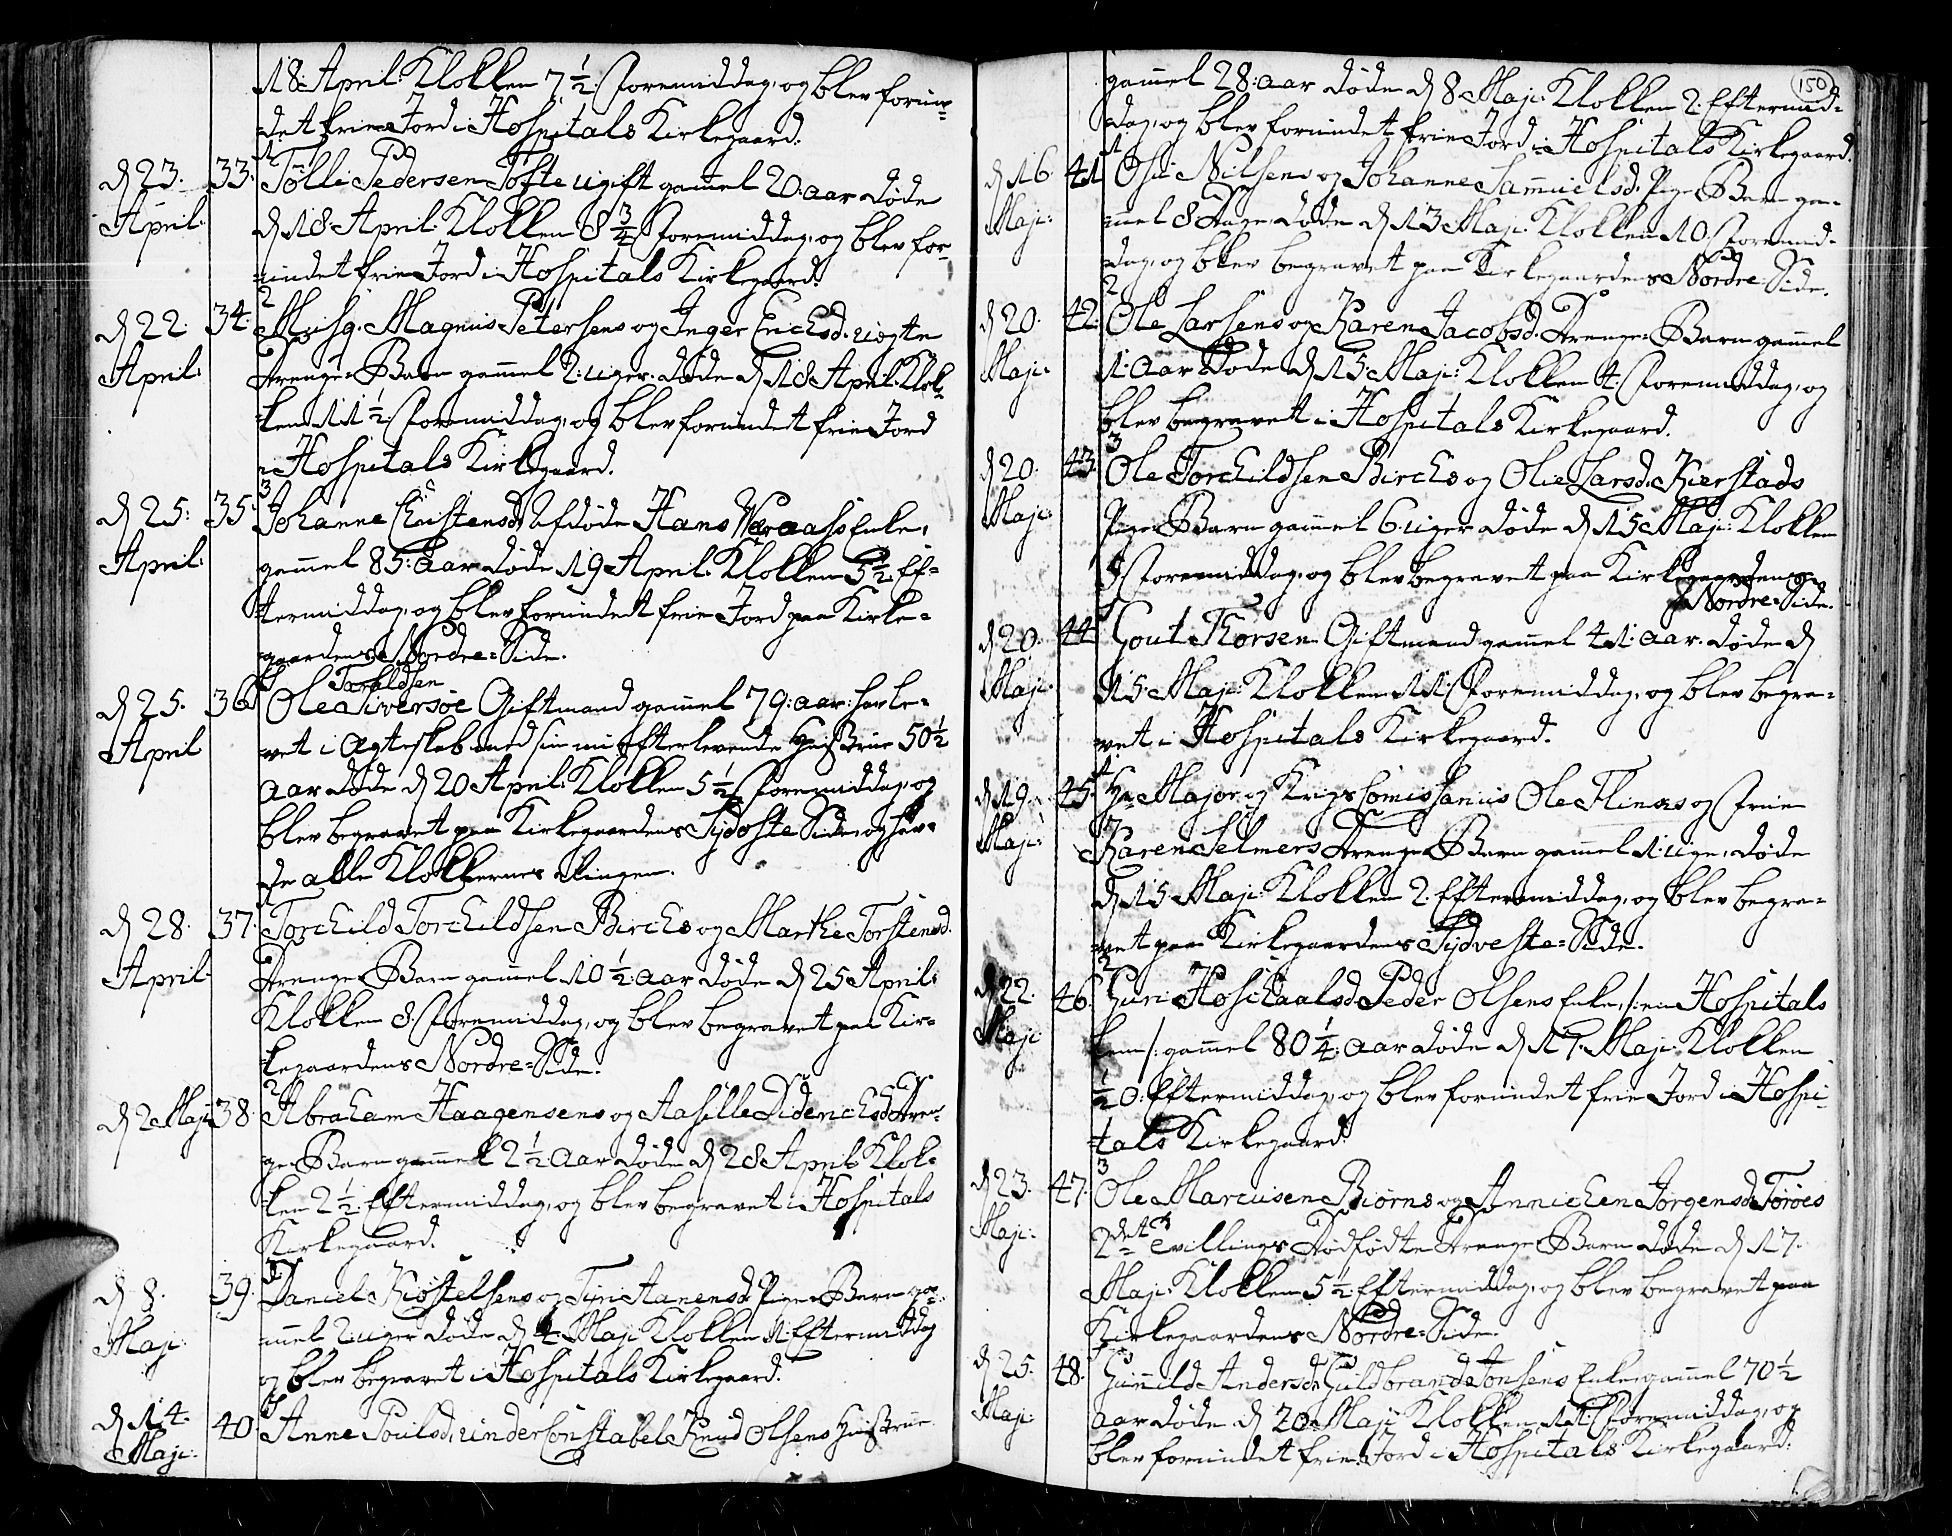 18 April: Klokken 7 1/2 Formiddag, og blev forun-
det frie Jord i Hospitals Kirkegaard.
1
d 23. April: 33. Tölle Pedersen Tofte ugift gammel 20 aar døde
d 18 April: Klokken 8 3/4 Formiddag, og blev for-
undet frie Jord i Hospitals Kirkegaard.
2
d 22 April: 34. Musq. Magnus Petersens og Inger Erichsd. uægte
Drenge-Barn gammel 2 uger døde d 18 April: Klok-
ken 11 1/2 Formiddag, og blev forundet frie Jord
i Hospitals Kirkegaard.
3
d 25: April: 35. Johanne Christensd, Afdøde Hans Enke,
gammel 85: aar døde 19 April: Klokken 5 1/2 Ef-
termiddag, og blev forundet frie Jord paa Kirke-
gaardens Nordre-Side.
Toraldsen
d 25. April 36. Ole Giftmand gammel 79: aar: har le-
vet i Ægteskab med sin nu efterlevende Hustrue 50 1/2
aar døde d 20 April: Klokken 5 1/2 Formiddag, og
blev begravet paa Kirkegaardens Sydoste Side, og hav-
de alle Klokkernes Ringen.
d 28. April: 37. Torchild Torchildsen Birchs og Marthe Torstensd.
Drenge Barn gammel 10 1/2: aar døde d 25 April:
Klokken 8. Formiddag, og blev begravet paa Kir-
kegaardens Nordre-Side.
2
d 2 Maji 38. Abraham Haagensens og Aasille Diderichsd. Dren-
ge Barn gammel 2 1/2 aar døde d 28 April: Klok-
ken 2 1/2 Eftermiddag, og blev begravet i Hospitals
Kirkegaard.
d 8. Maji: 39. Daniel Kiøstelsens og Siri Aanensd. Pige Barn ga-
mmel 2 uger døde d 4 Maji Klokken 1. Eftermiddag
og blev begravet i Hospitals Kirkegaard.
d 14. Maji: 40. Anne Poulsd, underConstabel Knud Olsens Hustrue
150
gammel 28: aar døde d 8 Maji: Klokken 2. Eftermid-
dag, og blev forundet frie Jord i Hospitals Kirkegaard.
1
d 16 Maji: 41 Nilsens og Johanne Samuelsd. Pige Barn ga-
mmel 8 Dage døde d 13 Maji: Klokken 10. Formid-
dag, og blev begravet paa Kirkegaardens Nordre Side.
2
d 20. Maji: 42. Ole Larsens og Karen Jacobsd. Drenge-Barn gammel
1: aar døde d 15. Maji: Klokken 4. Formiddag, og
blev begravet i Hospitals Kirkegaard.
3
d 20. Maji: 43. Ole Torchildsen Birchs og Olie Larsd. Kierstads
Pige Barn gammel 6 uger døde d 15 Maji: Klokken
9 Formiddag, og blev begravet paa Kirkegaardens
Nordre-Side.
d 20. Maji: 44 Gout Thorsen Giftmand gammel 41: aar. døde d
15. Maji: Klokken 11. Formiddag, og blev begra-
vet i Hospitals Kirkegaard.
1
d 19. Maji: 45. Hr Major og Krigs Comissarius Ole og Frue
Karen Selmers Drenge Barn gammel 1: uge, døde
d 15 Maji: Klokken 2. Eftermiddag, og blev begra-
vet paa Kirkegaardens Sydveste-Side.
2
d 22. Maji 46. Guri Peder Olsens Enke, /: en Hospitals
Lem :/ gammel 80 1/4: aar døde d 17. Maji: Klokken
1/2 0. Eftermiddag, og blev forundet frie Jord i Hospi-
tals Kirkegaard.
3
d 23. Maji: 47. Ole Marcusen Biørns og Annichen Jørgensd. Torøes
2det Tvillings Dødfødte Drenge Barn døde d 17.
Maji: Klokken 5 1/2 Eftermiddag, og blev begravet paa
Kirkegaardens Nordre-Side.
d 25. Maji: 48. Gunnild Andersd. Guldbrand Jonsens Enke gammel 70 1/2
aar døde d 20 Maji Klokken Formiddag, og
blev forundet frie Jord i Hospitals Kirkegaard.